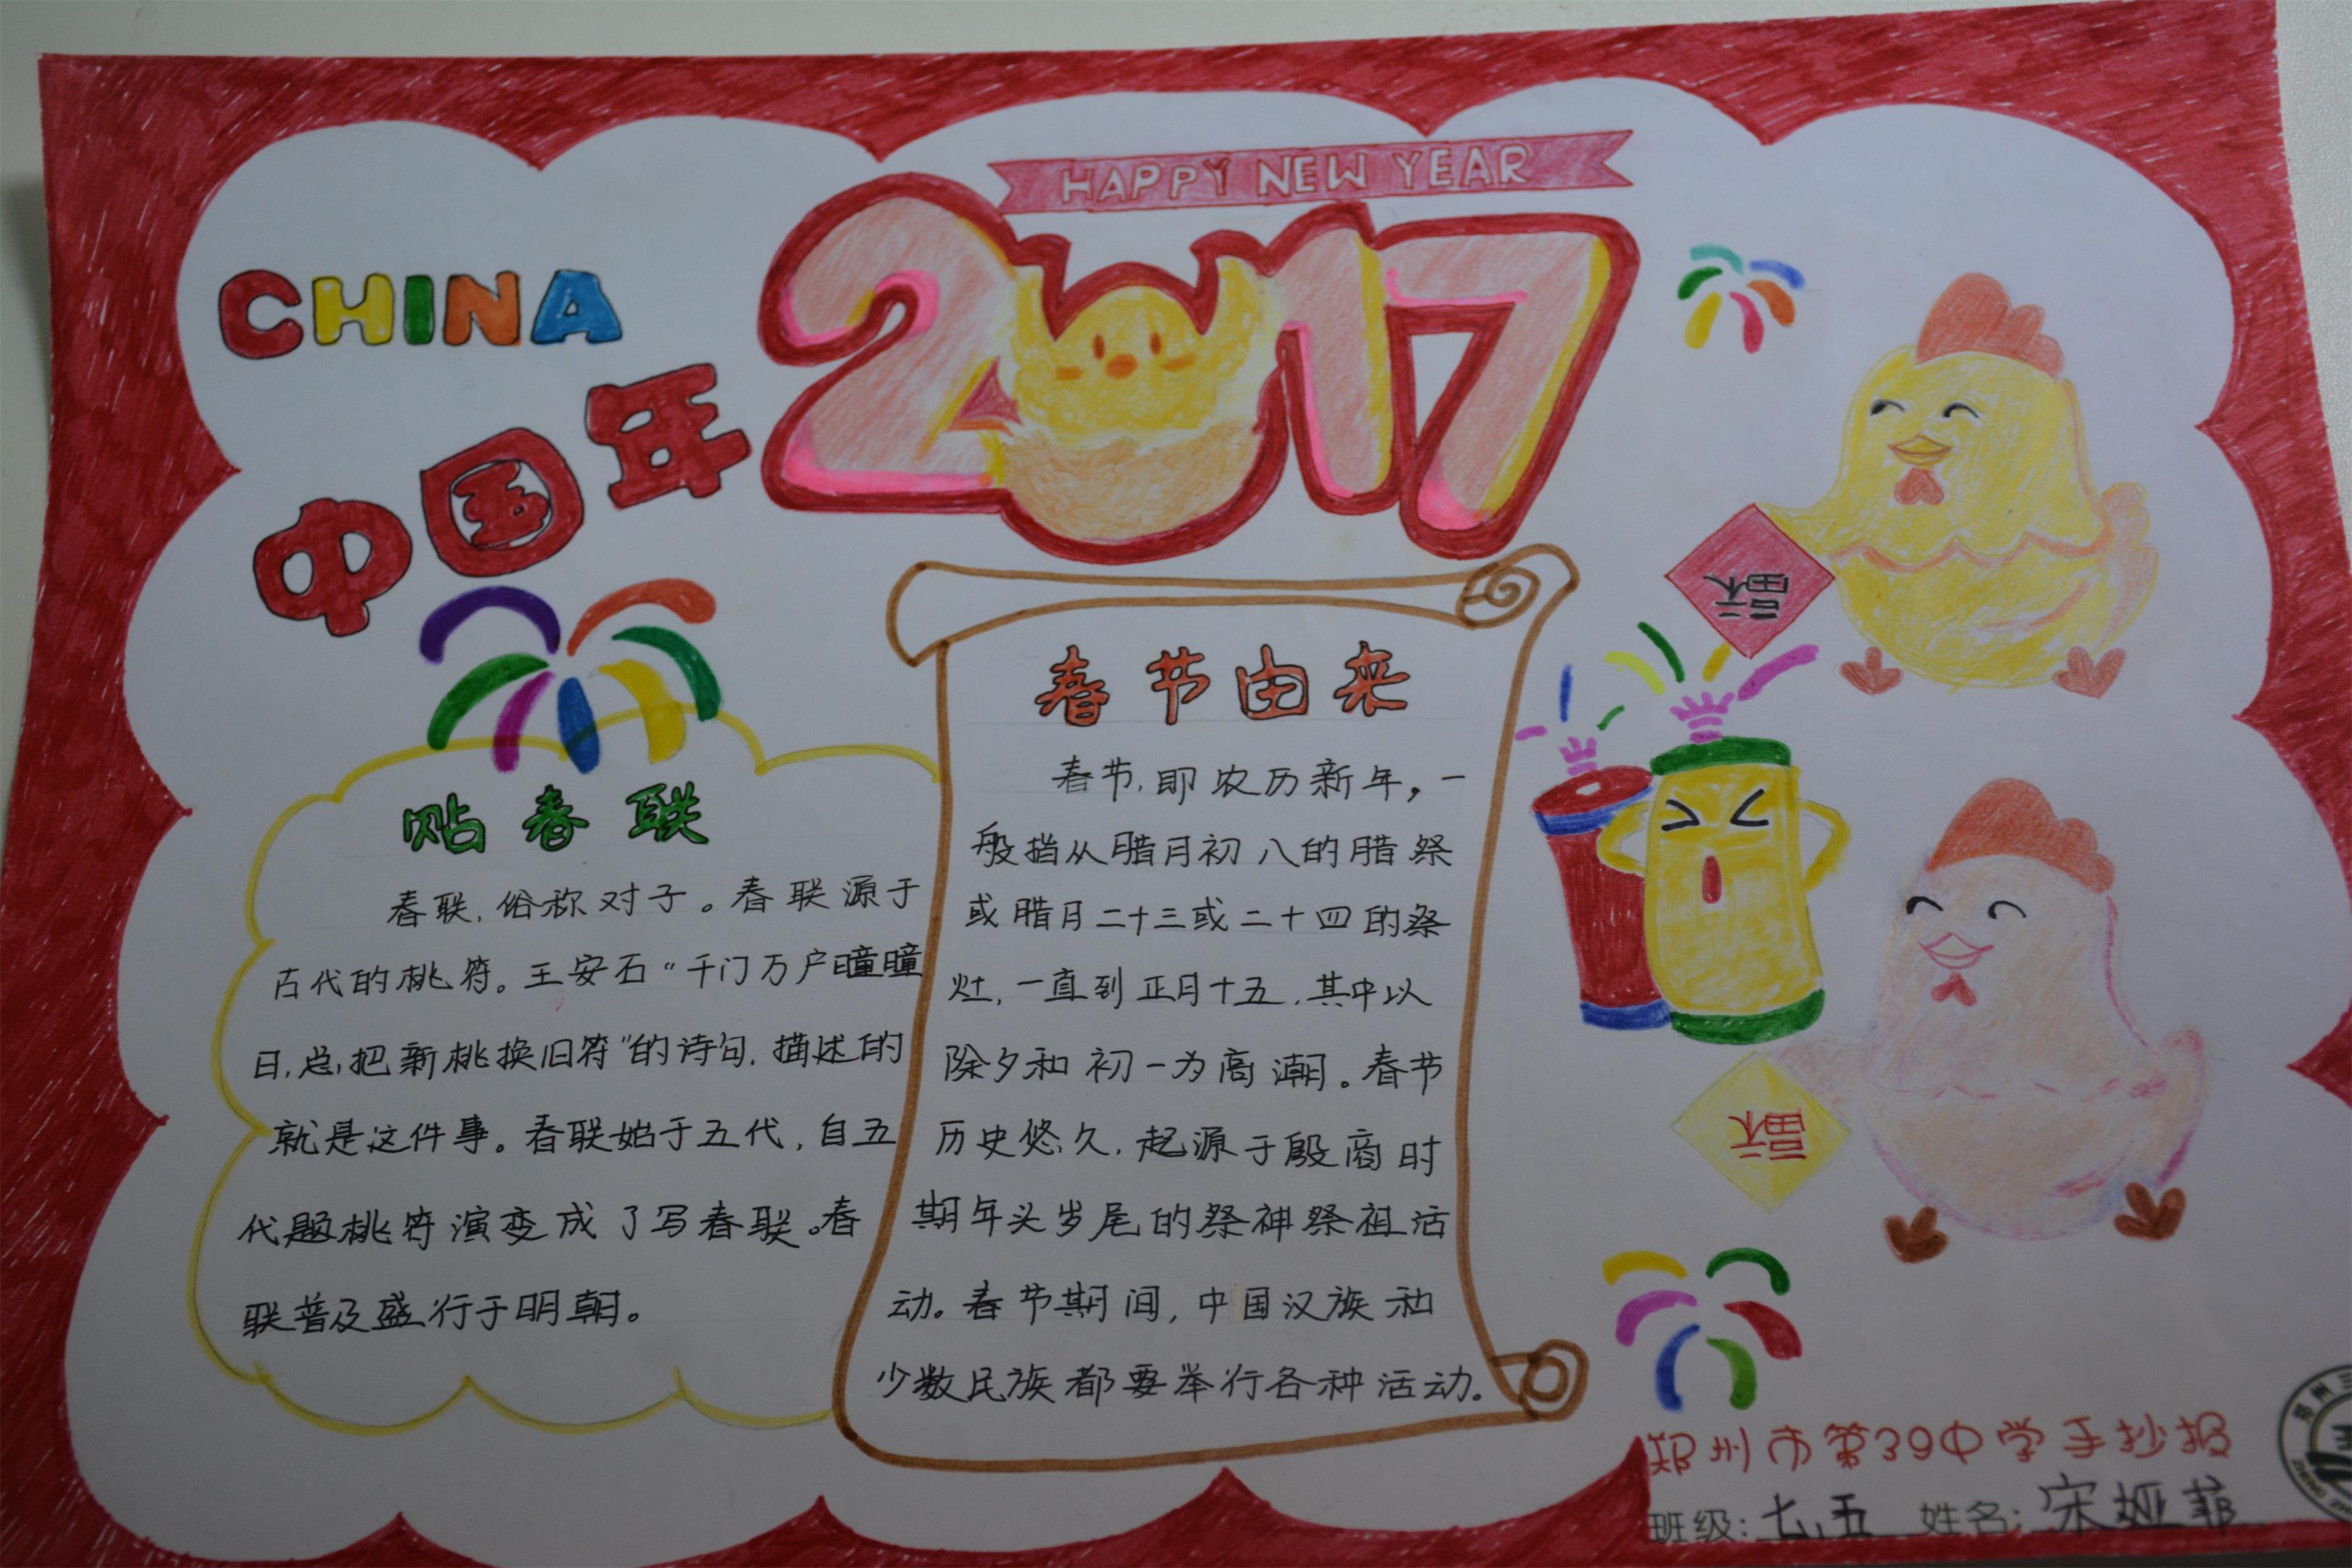 HAPPY NEW YEAR
2017
CHINA
中国年
福
贴春联
春联,俗称对子。春联源于
古代的桃符。王安石“千门万户瞳瞳
日,总把新桃换旧符”的诗句,描述的
就是这件事。春联始于五代,自五
代题桃符演变成了写春联。春
联普及盛行于明朝。
春节由来
春节,即农历新年,一
般指从腊月初八的腊祭
或腊月二十三或二十四的祭
灶,一直到正月十五,其中以
除夕和初一为高潮。春节
历史悠久,起源于殷商时
期年头岁尾的祭神祭祖活
动。春节期间,中国汉族和
少数民族都要举行各种活动。
福
郑州市第39中学手抄报
班级:七、五 姓名:宋娅菲
郑州三